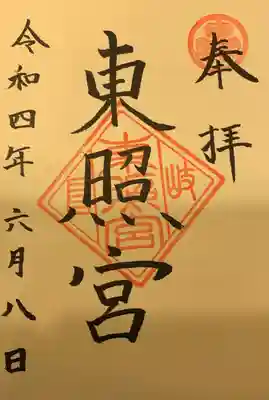 奉拝
東照宮
令和四年六月八日